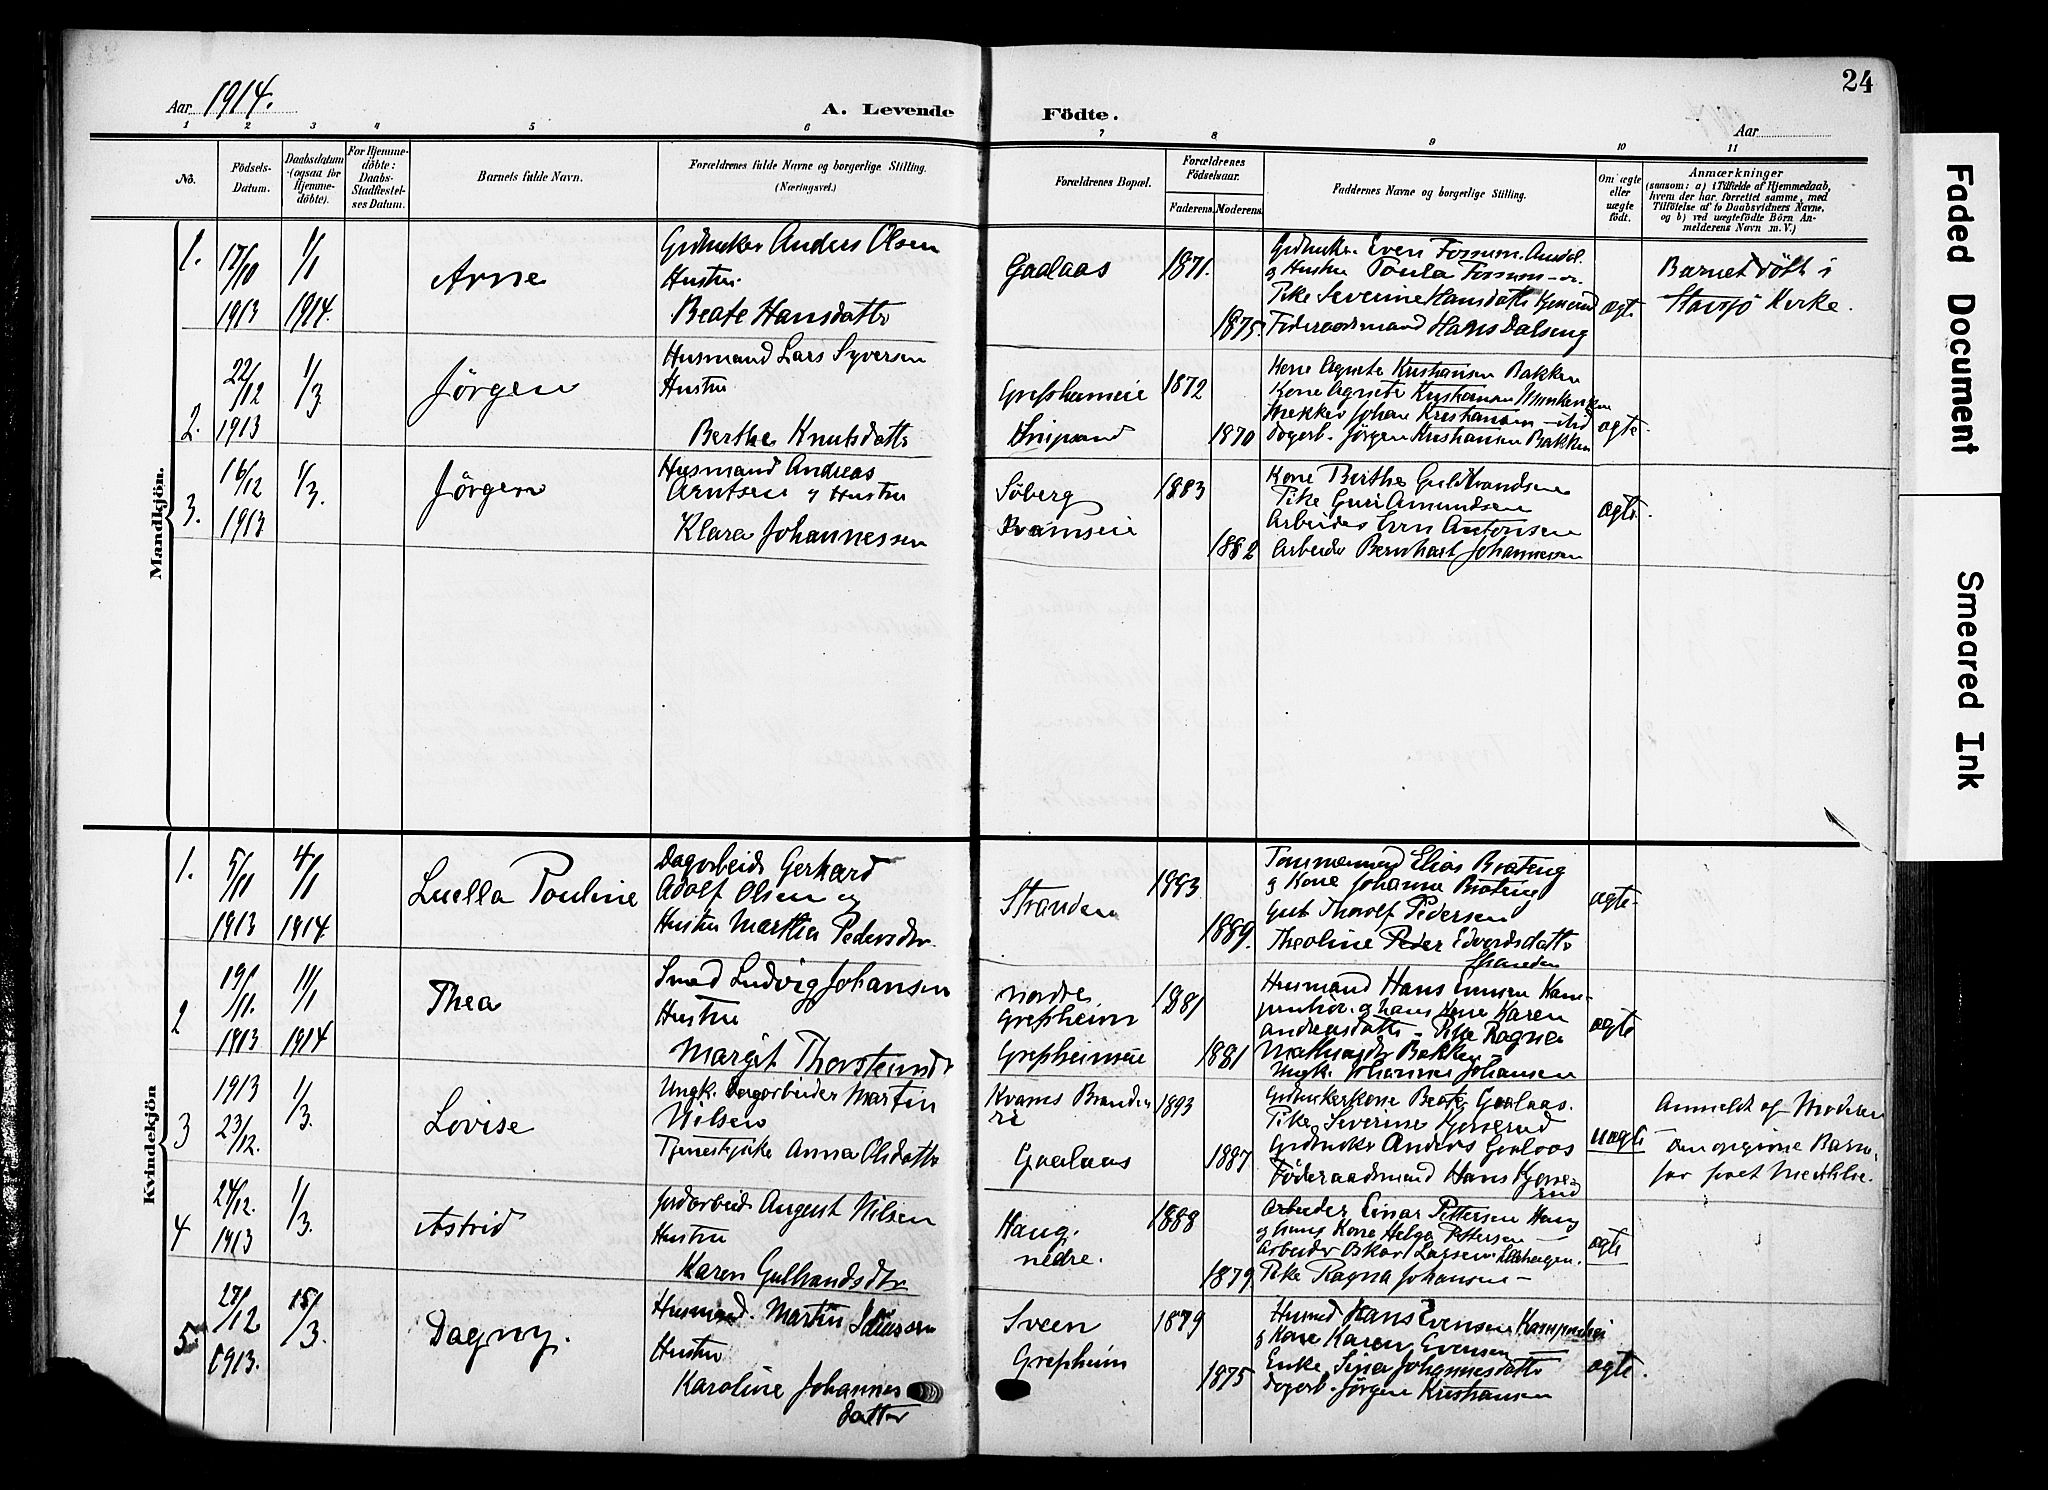 24
Aar 1914.
A. Levende
Födte.
Aar
1 2 3 4 5 6 7 8 9 10 11
No.
Födsels-
Datum.
Daabsdatum
(ogsaa for
Hjemme-
döbte).
For Hjemme-
döbte:
Daabs-
Stadfæstel-
ses Datum.
Barnets fulde Navn.
Forældrenes fulde Navne og borgerlige Stilling.
(Næringsvei.)
Forældrenes Bopæl.
Forældrenes
Födselsaar.
Faderens. Moderens.
Faddernes Navne og borgerlige Stilling.
Om ægte
eller
uægte
født.
Anmærkninger
(saasom: a) i Tilfælde af Hjemmedaab,
hvem der har forrettet samme, med
Tilföielse af to Daabsvidners Navne,
og b) ved uægtefödte Börn An-
melderens Navn m. V.)
Mandkjön.
1.
17/10
1913
1/1
1914.
Arne
Grdbruker Anders Olsen
Hustru
Beate Hansdatter
Gaalaas
1871.
1875.
Grdbruker Even Fossum
og Hustru Paula Fossum
Pike Severine Hansdatter
Føderaadsmand Hans Dalseng
ægte
Barnet døbt i
Stavsjø Kirke.
2.
22/12
1913
1/3
Jørgen
Husmand Lars Syversen
Hustru
Berthe Knutsdatter
Grefsheimeie
1872
1870
Kone Agnete Kristiansen Bakken
Kone Agnete Kristiansen
Snekker Johan Kristiansen
Dagarb. Jørgen Kristiansen Bakken
ægte
3.
16/12
1913
1/3.
Jørgen
Husmand Andreas
Arntsen og Hustru
Klara Johannessen
Søberg
Kvamseie
1883
1882
Kone Berthe Guldbrandsen
Pike Guri Amundsen
Arbeider Even Antonsen
Arbeider Bernhart Johannessen
ægte
Kvindekjön
1.
5/11
1913
4/1
1914.
Luella Pauline
Dagarbeider Gerhard
Adolf Olsen og
Hustru Martha Pedersdtr.
Stranden
1893
1889.
Tømmermand Elias Brateng
og Kone Johanne Bråteng
Gut Thorolf Pedersen
Theoline Peder Edvardsdatter
Stranden
ægte
2
19/11.
1913
11/1
1914
Thea
Smed Ludvig Johansen
Hustru
Margit Thorsteinsdtr
Nordre
Grefsheim
Grefsheimeie
1881
1881
Husmand Hans Evensen Kam-
penhôi og hans Kone Karen
Andreasdatter - Pike Ragna
Mathiasdtr Bakken
Ungk. Johannes Johansen
ægte
3
1913
23/12.
1/3.
Lovise
Ungk. Dagarbeider Martin
Nilsen
Tjenestepike Anna Olsdatter
Kvams
Gaalaas
1893
1887
Grdbrukerkone Beate Gaalaas.
Pike Severine Kjønerud
Grdbruker Anders Gaalaas
Føderaadsmand Hans Kjøne-
rud
uægte
Anmeldt af Moderen
Den opgivne Barne-
far
4
24/12.
1913
1/3.
Astrid
Jordarbeider August Nilsen
Hustru
Karen Gulbrandsdtr
Haug
nedre.
1888
1879.
Arbeider Einar Pettersen Haug
og hans Kone Helga Pettersen
Arbeider Oskar Larsen
Pike Ragna Johansen
ægte
5.
27/12
1913.
15/3.
Dagny.
Husmand. Martin
Hustru
Karoline Johannes
datter
Sveen
Grefsheim
1879
1875
Husmd Hans Evensen Kampenhoi
og Kone Karen Evensen
Enke Sina Johannesdatter
Dagarb. Jørgen Kristiansen
ægte.
Faded Document
Smeared Ink